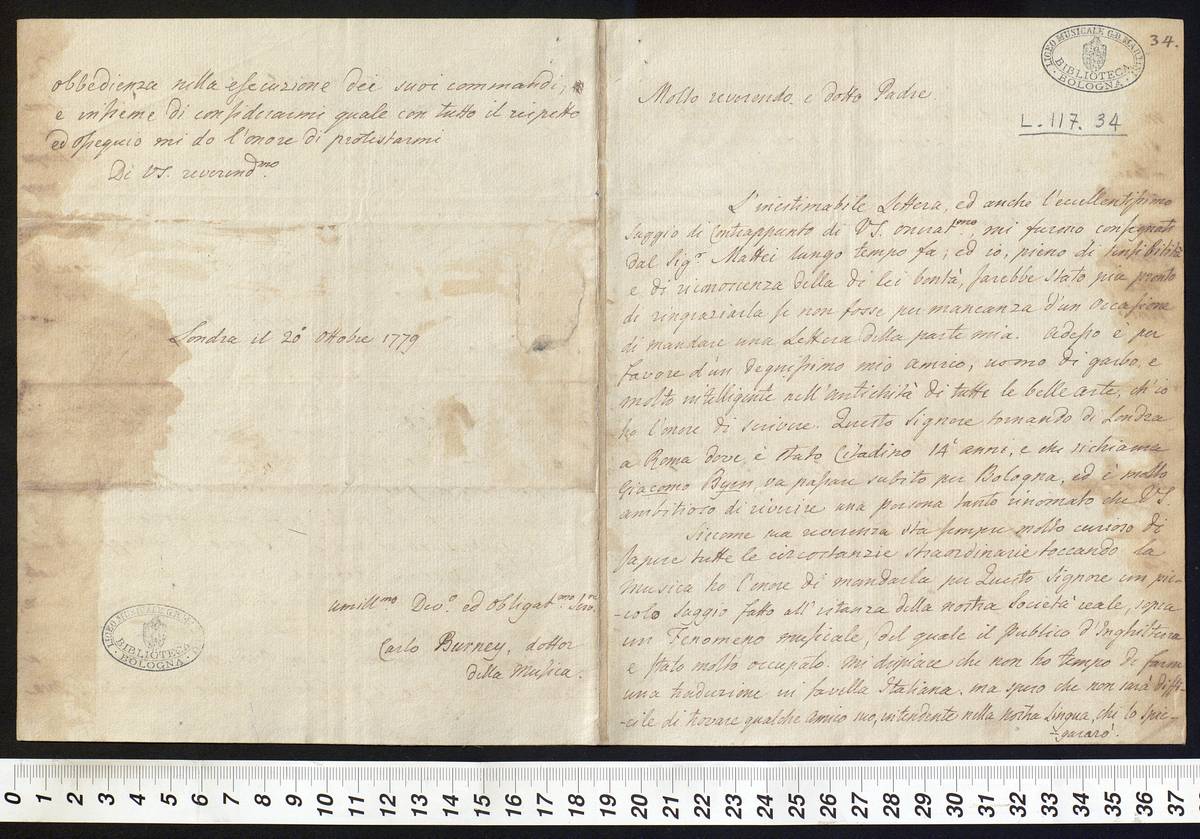 obbedienza nella esecuzione dei suoi commandi,
e insieme di considerarmi quale con tutto il rispetto
ed ossequio mi do l'onore di protestarmi
Di VS. reverend.mo
Londra il 20 Ottobre 1779
umill.mo Dev.o ed obligat.mo
Carlo Burney, dottor
della Musica.
LICEO MUSICALE G.B. MARTINI
BIBLIOTECA
BOLOGNA
34.
LICEO MUSICALE G.B. MARTINI
BIBLIOTECA
BOLOGNA
Molto reverendo e dotto Padre
L. 117. 34
L'inestimabile Lettera, ed anche l'eccellentissimo
saggio di Contrappunto di VS. mi furono consegnati
dal Sig.r Mattei lungo tempo fa; ed io, pieno di sensibilità
e di riconoscenza della di lei bontà, sarebbe stato più pronto
di ringraziarla se non fosse per mancanza d'un Occasione
di mandare una Lettera della parte mia. Adesso è per
favore d'un degnissimo mio amico, uomo di garbo, e
molto intelligente nell'antichità di tutte le belle arte, ch'io
ho l'onore di scrivere. Questo Signore tornando di Londra
a Roma dove è stato Citadino 14 anni, e che si chiama
Giacomo Byrn, va passare subito per Bologna, ed è molto
ambitioso di riverire una persona tanto rinomato che VS.
Siccome sua reverenza sta sempre molto curioso di
sapere tutte le circostanzie straordinarie toccando la
Musica ho l'onore di mandarla per Questo Signore un pic-
-colo saggio fatto all'istanza della nostra Società reale, sopra
un Fenomeno musicale, del quale il publico d'Inghilterra
e stato molto occupato. Mi dispiace che non ho tempo di farne
una traduzione in favella Italiana, ma spero che non sarà diffi-
-cile di trovare qualche amico suo, intendente nella nostra Lingua, chi lo spie-
-gararò.
0 1 2 3 4 5 6 7 8 9 10 11 12 13 14 15 16 17 18 19 20 21 22 23 24 25 26 27 28 29 30 31 32 33 34 35 36 37